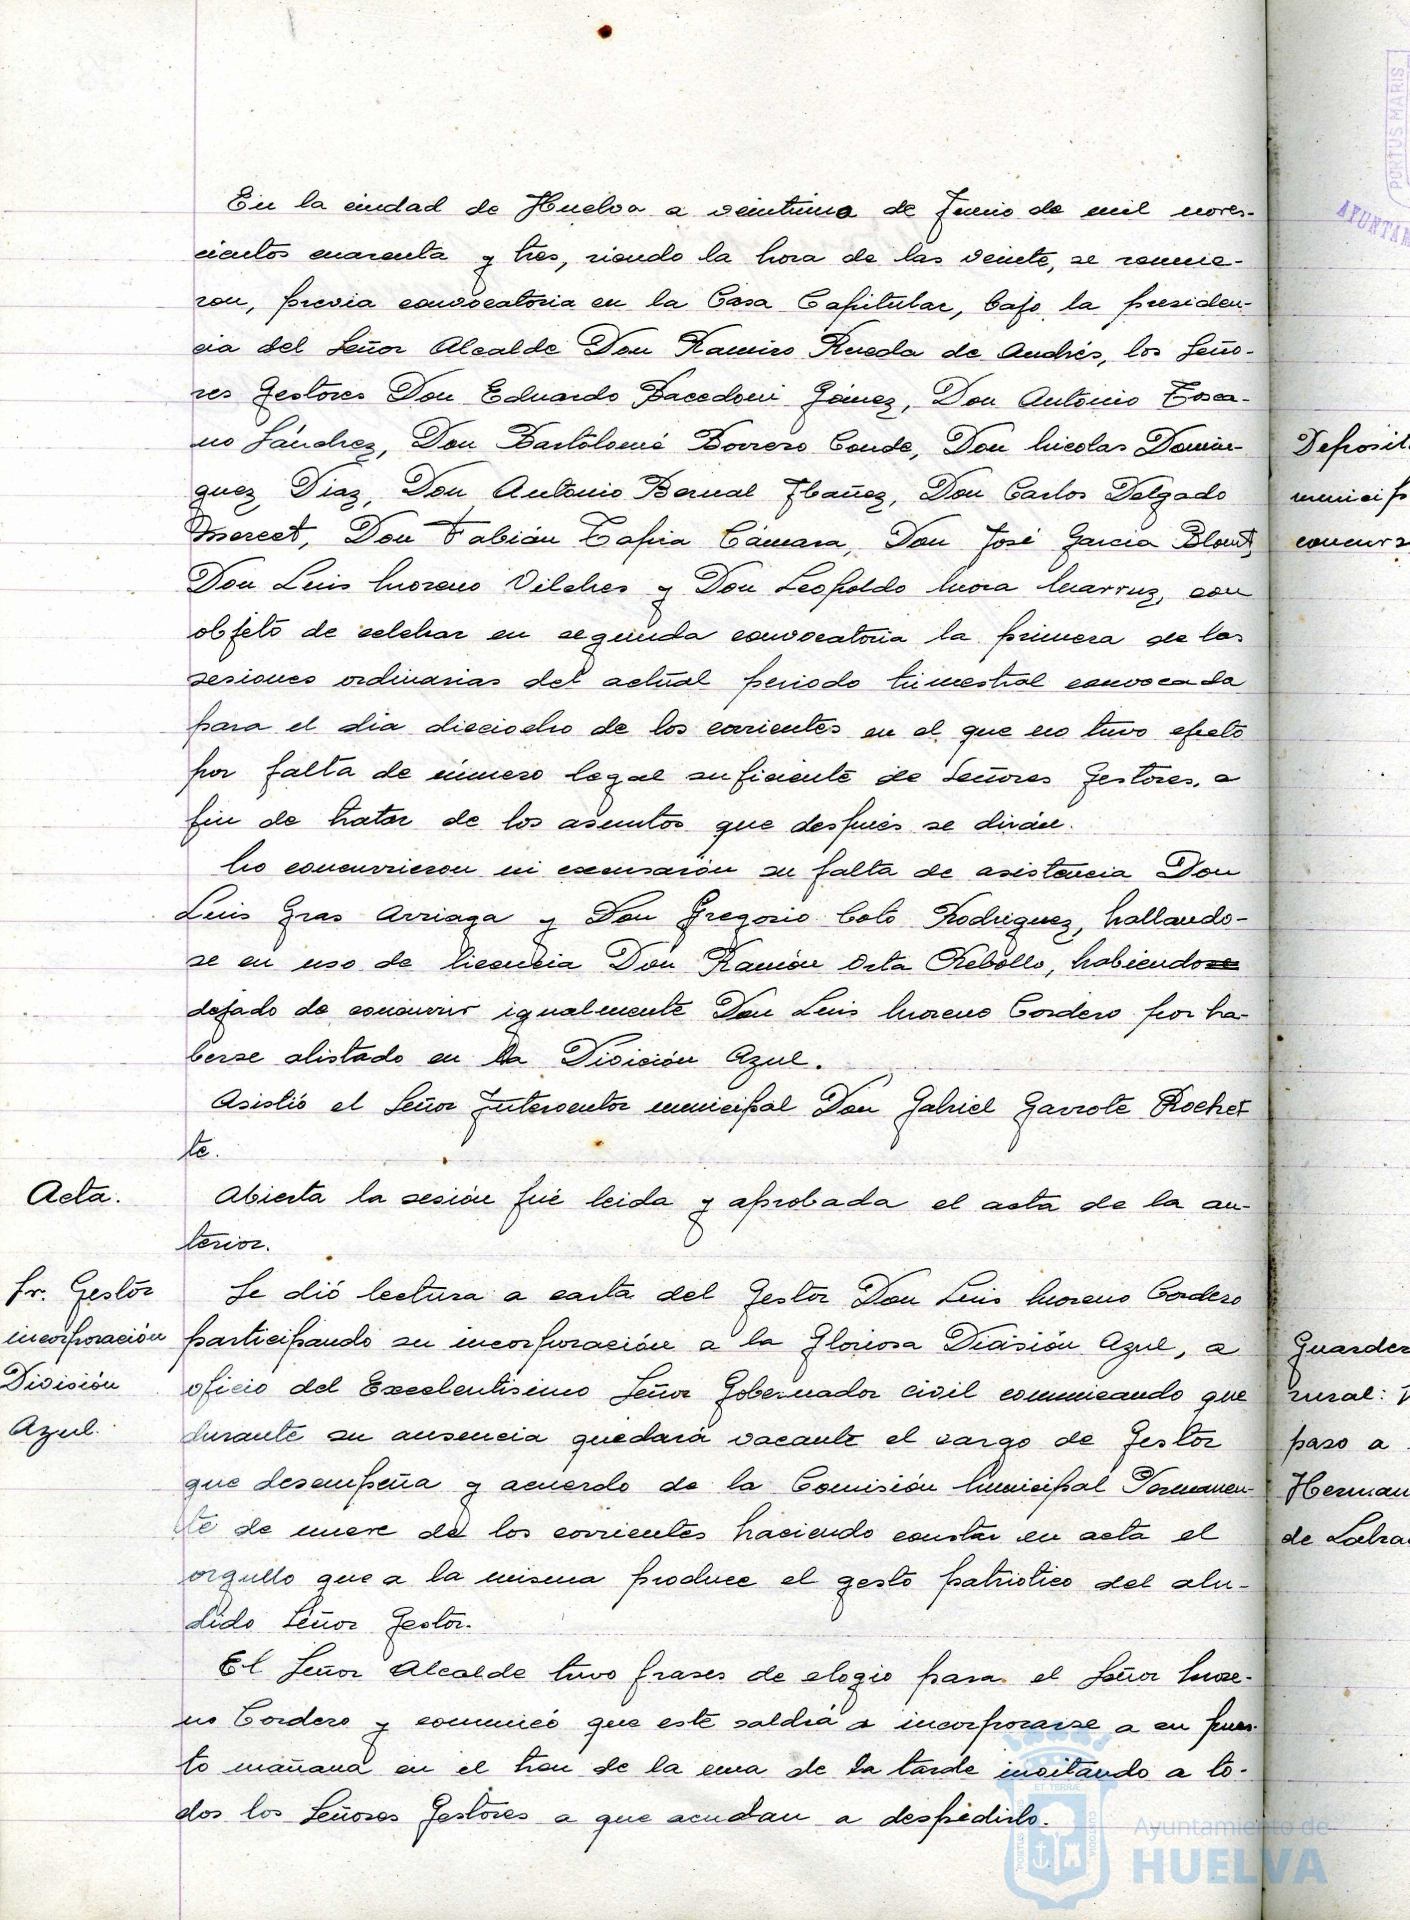 En la ciudad de Huelva a veintiuno de Junio de mil noves-
cientos cuarenta y tres, siendo la hora de las veinte, se reunie-
ron, previa convocatoria en la Casa Capitular, bajo la presiden-
cia del Señor Alcalde Don Ramiro Rueda de Andrés, los Seño-
res Gestores Don Eduardo Gómez, Don Antonio Tosca-
no Sánchez, Don Bartolomé Borrero Conde, Don Nicolas Domin-
guez Diaz, Don Antonio Bernal Ibañez, Don Carlos Delgado
Don Fabián Tapia Cámara, Don José Garcia Blount,
Don Luis Moreno Vilches y Don Leopoldo Mora Marruz, con
objeto de celebrar en segunda convocatoria la primera de las
sesiones ordinarias del actual periodo trimestral convocada
para el dia dieciocho de los corrientes en el que no tuvo efecto
por falta de número legal suficiente de Señores Gestores, a
fin de tratar de los asuntos que después se dirán.
No concurrieron ni excusarón su falta de asistencia Don
Luis Gras Arriaga y Don Gregorio Coto Rodriguez, hallando-
se en uso de licencia Don Ramón Orta Rebollo, habiendose
dejado de concurrir igualmente Don Luis Moreno Cordero por ha-
berse alistado en la División Azul.
Asistió el Señor Interventor municipal Don Gabriel Garrote Rochet-
te.
Acta.
Abierta la sesión fué leida y aprobada el acta de la an-
terior.
Sr. Gestor
incorporación
División
Azul.
Se dió lectura a carta del Gestor Don Luis Moreno Cordero
participando su incorporación a la Gloriosa División Azul, a
oficio del Excelentisimo Señor Gobernador civil comunicando que
durante su ausencia quedará vacante el cargo de Gestor
que desempeña y acuerdo de la Comisión Municipal Permanen-
te de nueve de los corrientes haciendo constar en acta el
orgullo que a la misma produce el gesto patriotico del alu-
dido Señor Gestor.
El Señor Alcalde tuvo frases de elogio para el Señor More-
no Cordero y comunicó que este saldrá a incorporarse a su pues-
to mañana en el tren de la una de la tarde invitando a to-
dos los Señores Gestores a que acudan a despedirlo.
PORTUS MARIS
AYUNTAM
Deposit
municip
concurs
Guarder
rural:
paso a
Herman
de Labra
ET TERRÆ
Ayuntamiento de
HUELVA